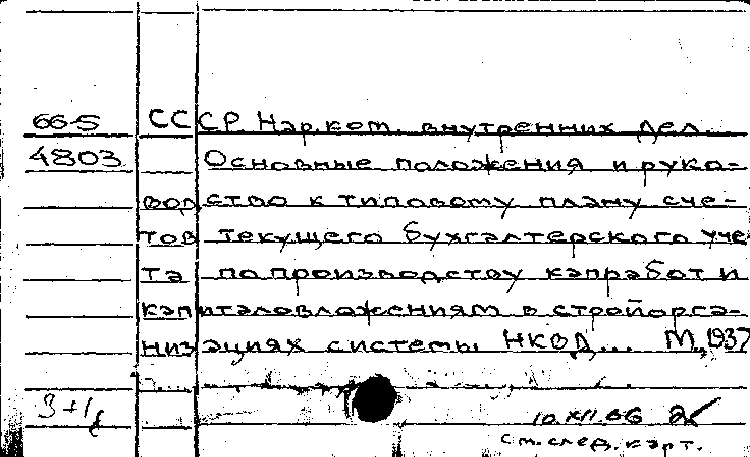 66-5 СССР Нар.ком. внутренних дел.
4803 Основные положения и руко-
водство к типовому плану сче-
тов текущего бухгалтерского уче
та по производству капработ и
капиталовложениям в стройорга-
низациях системы НКВД... М., 1937
3+1
10.XII.66 2
см.след.карт.